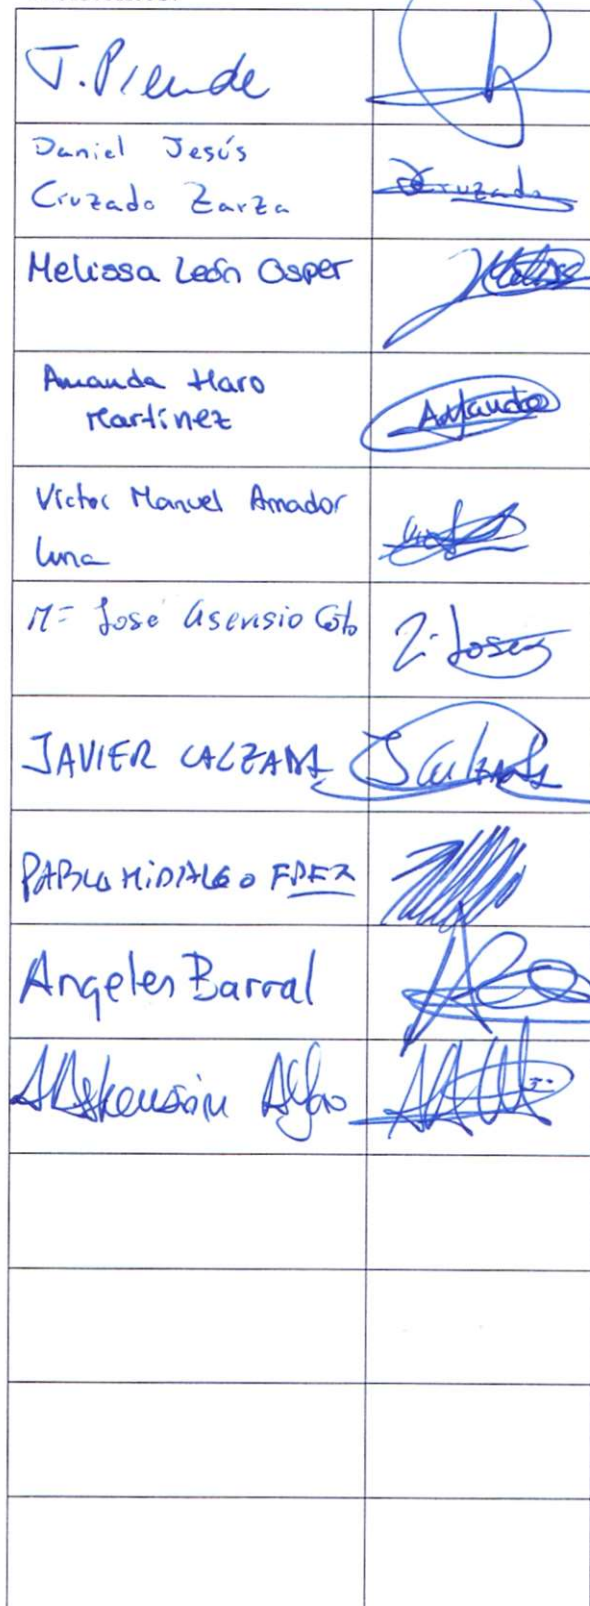 J. Piende
Daniel Jesús
Cruzado Zarza Cruzado
Melissa León Osper
Amanda Haro
Martínez Amanda
Víctor Manuel Amador
Luna
Mª José Asensio Coto
JAVIER CALZADA J Calzada
PABLO HIDALGO FDEZ
Angeles Barral
Alfaro